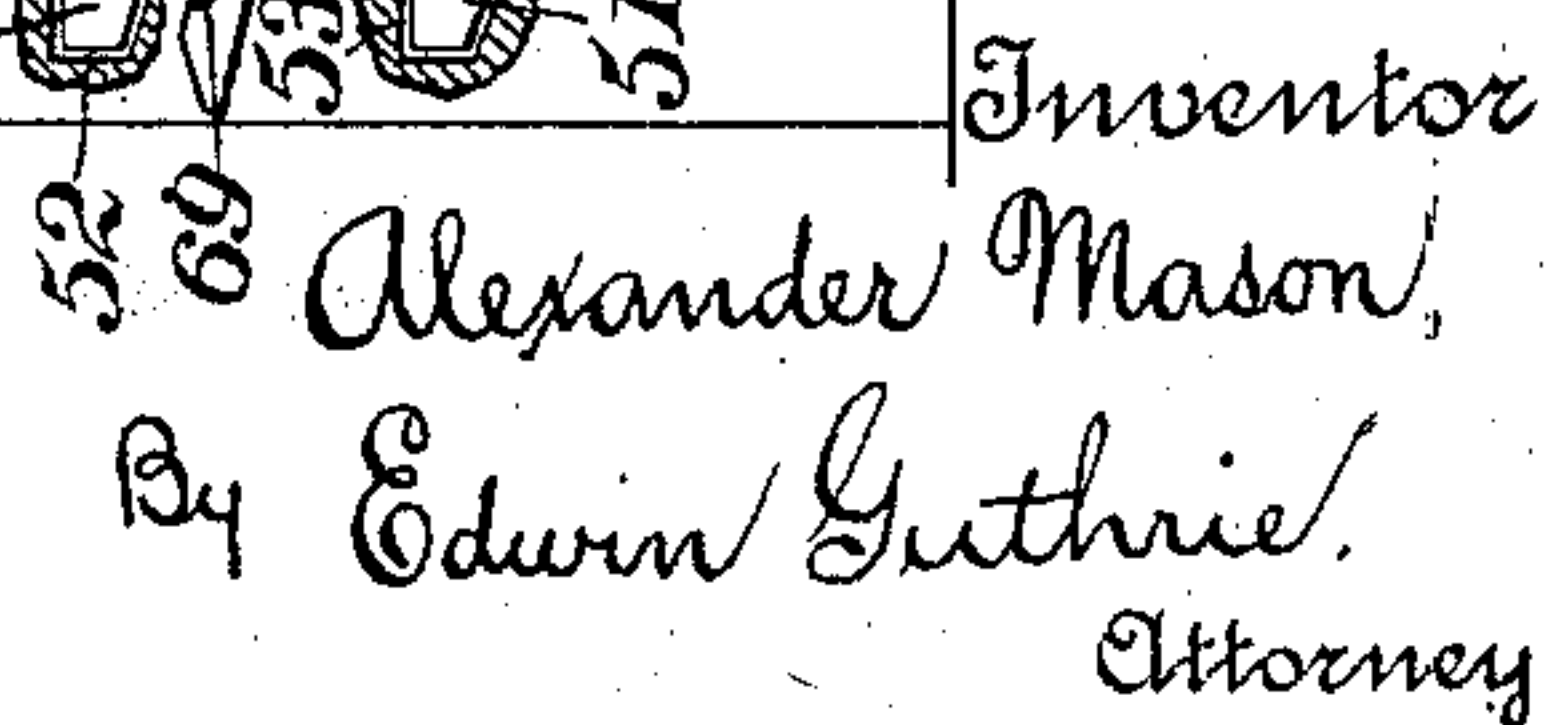 53 51
Inventor
52 69
Alexander Mason,
By Edwin Guthrie.
Attorney